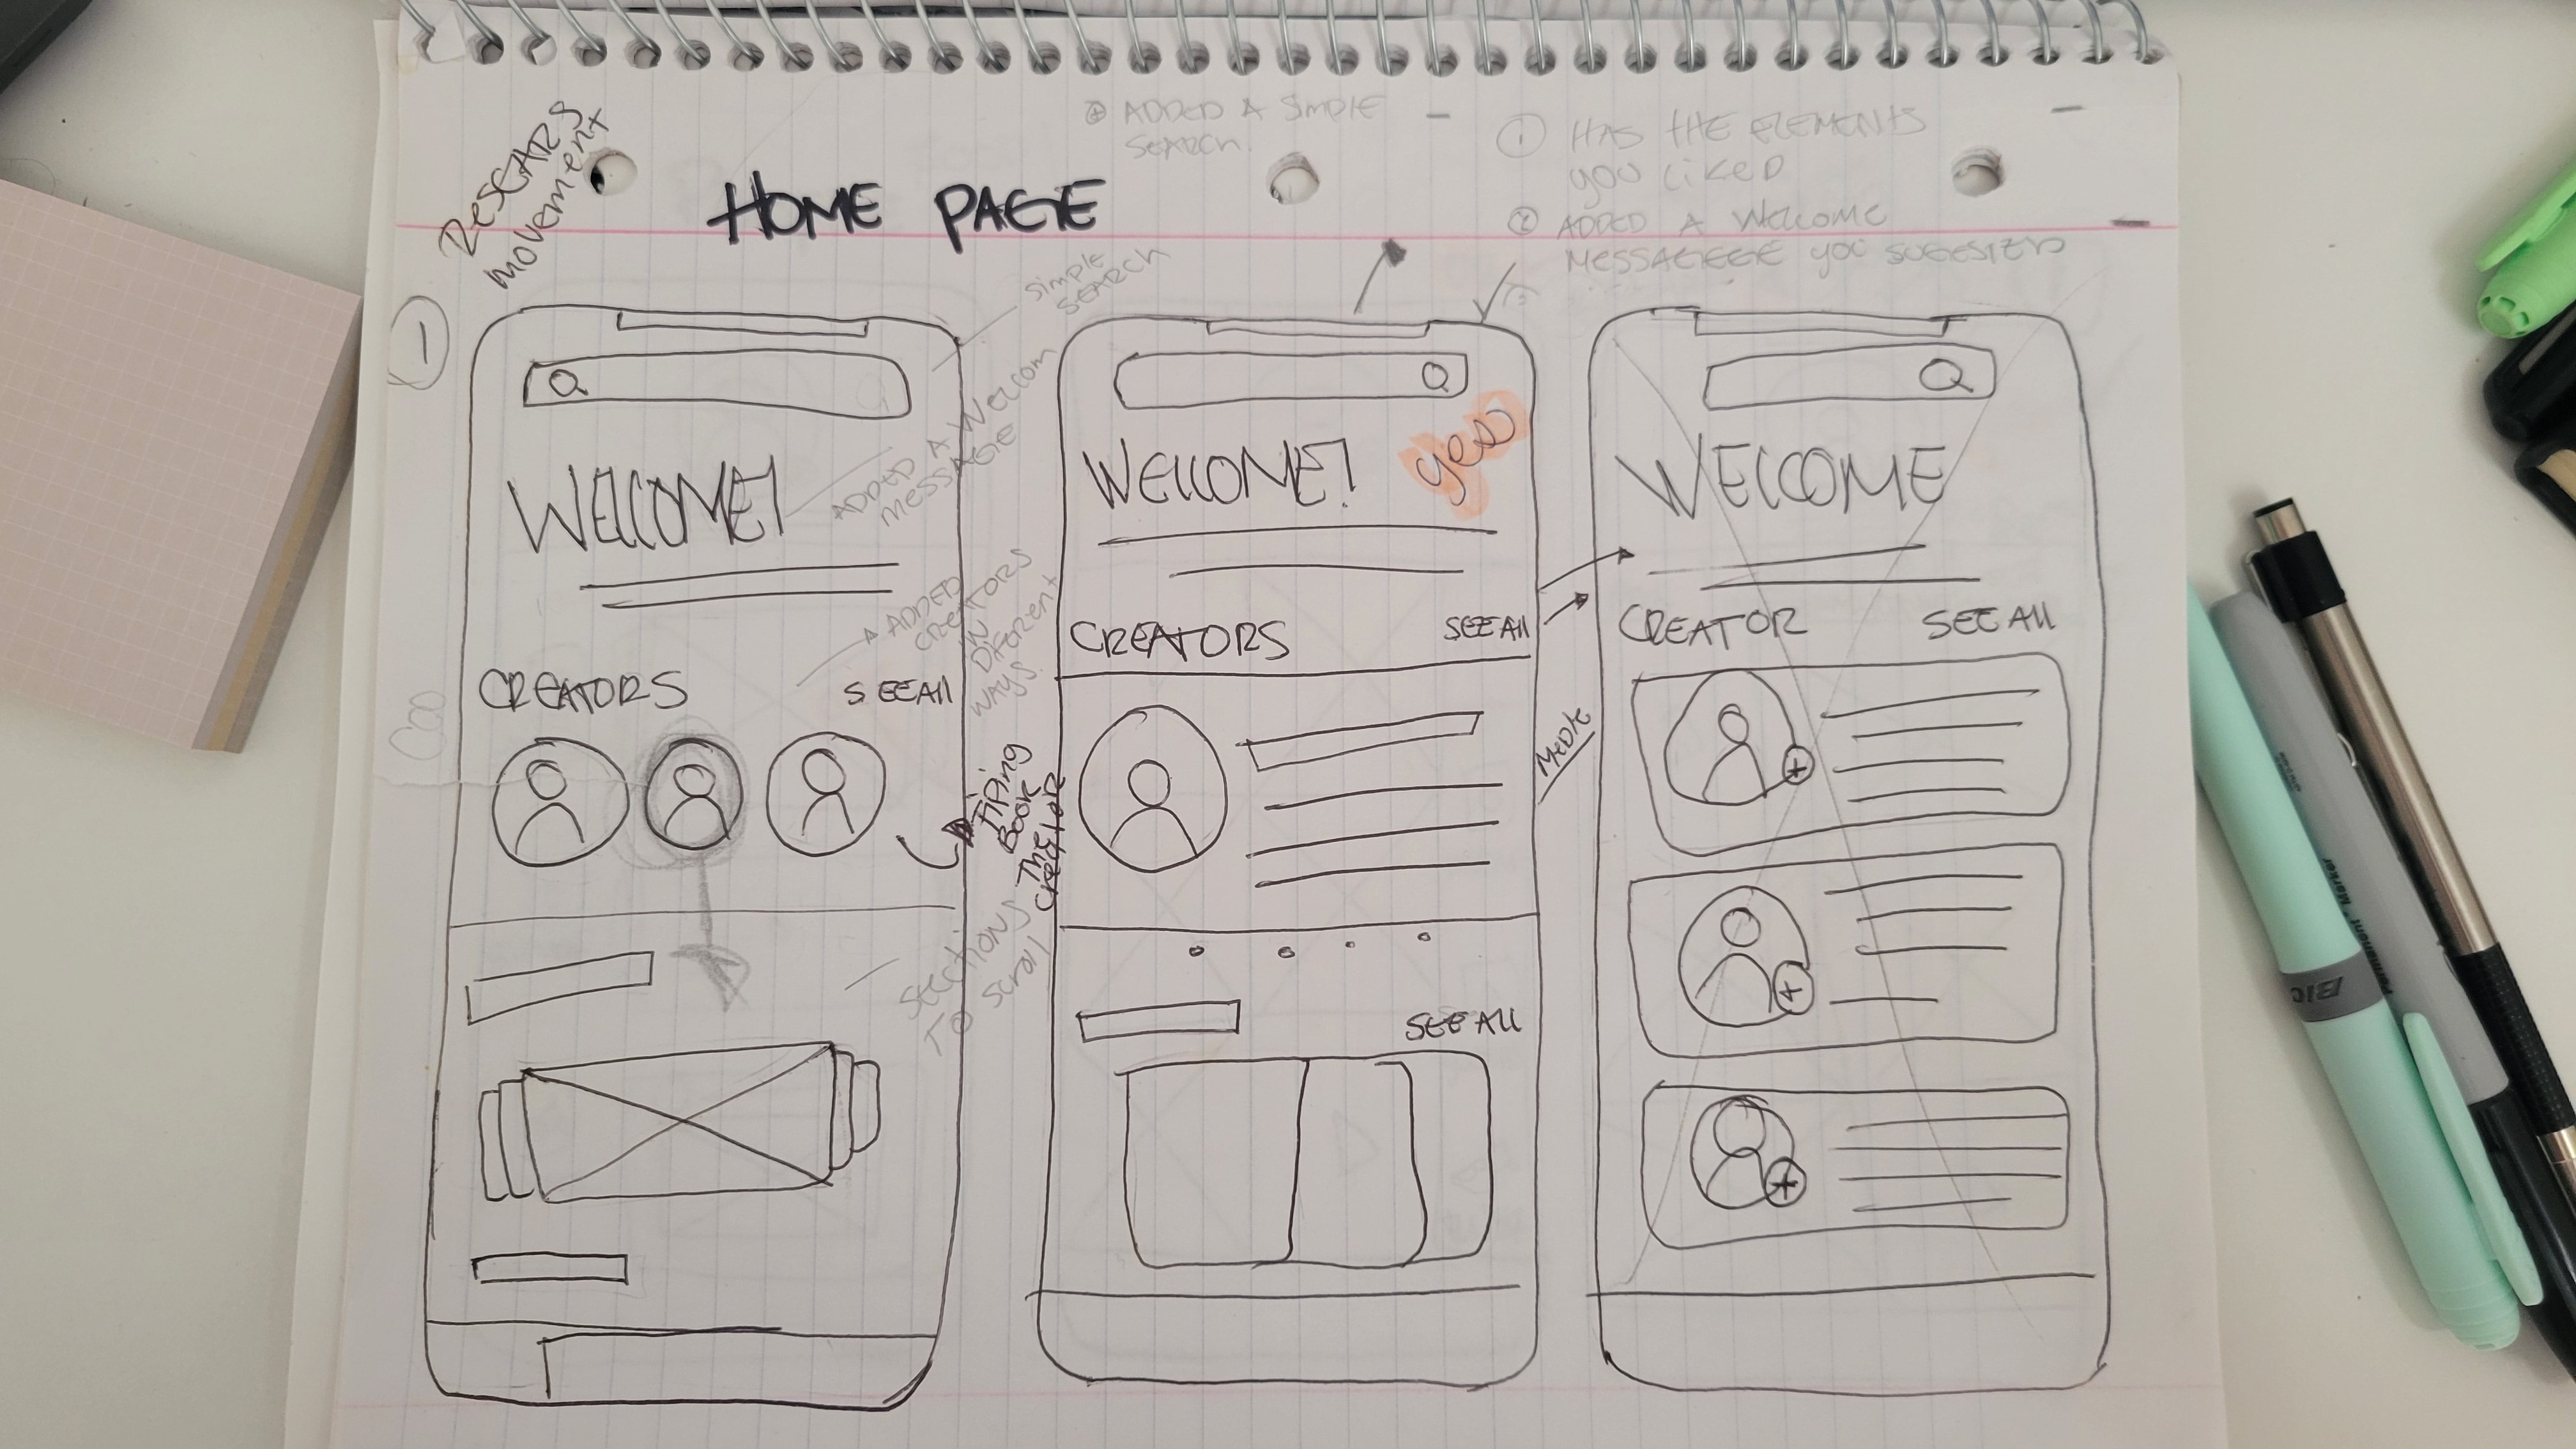 HOME PAGE
movement
② ADDED A SIMPLE
SEARCH.
① HAS THE ELEMENTS
you liked
② ADDED A WELCOME
MESSAGEEGE you SUGESTED
1
Simple
SEARCH
WELCOME!
ADDED A Welcom
MESSAGE
ADDED
CREATORS
IN
DIFERENT
WAYS
CREATORS
SEE All
Tiping
BOOK
The
Creator
Sections
To scroll
WELLOME!
yes
CREATORS
SEE All
SEE All
WELCOME
CREATOR
SEE All
BIC
Permanent Marker